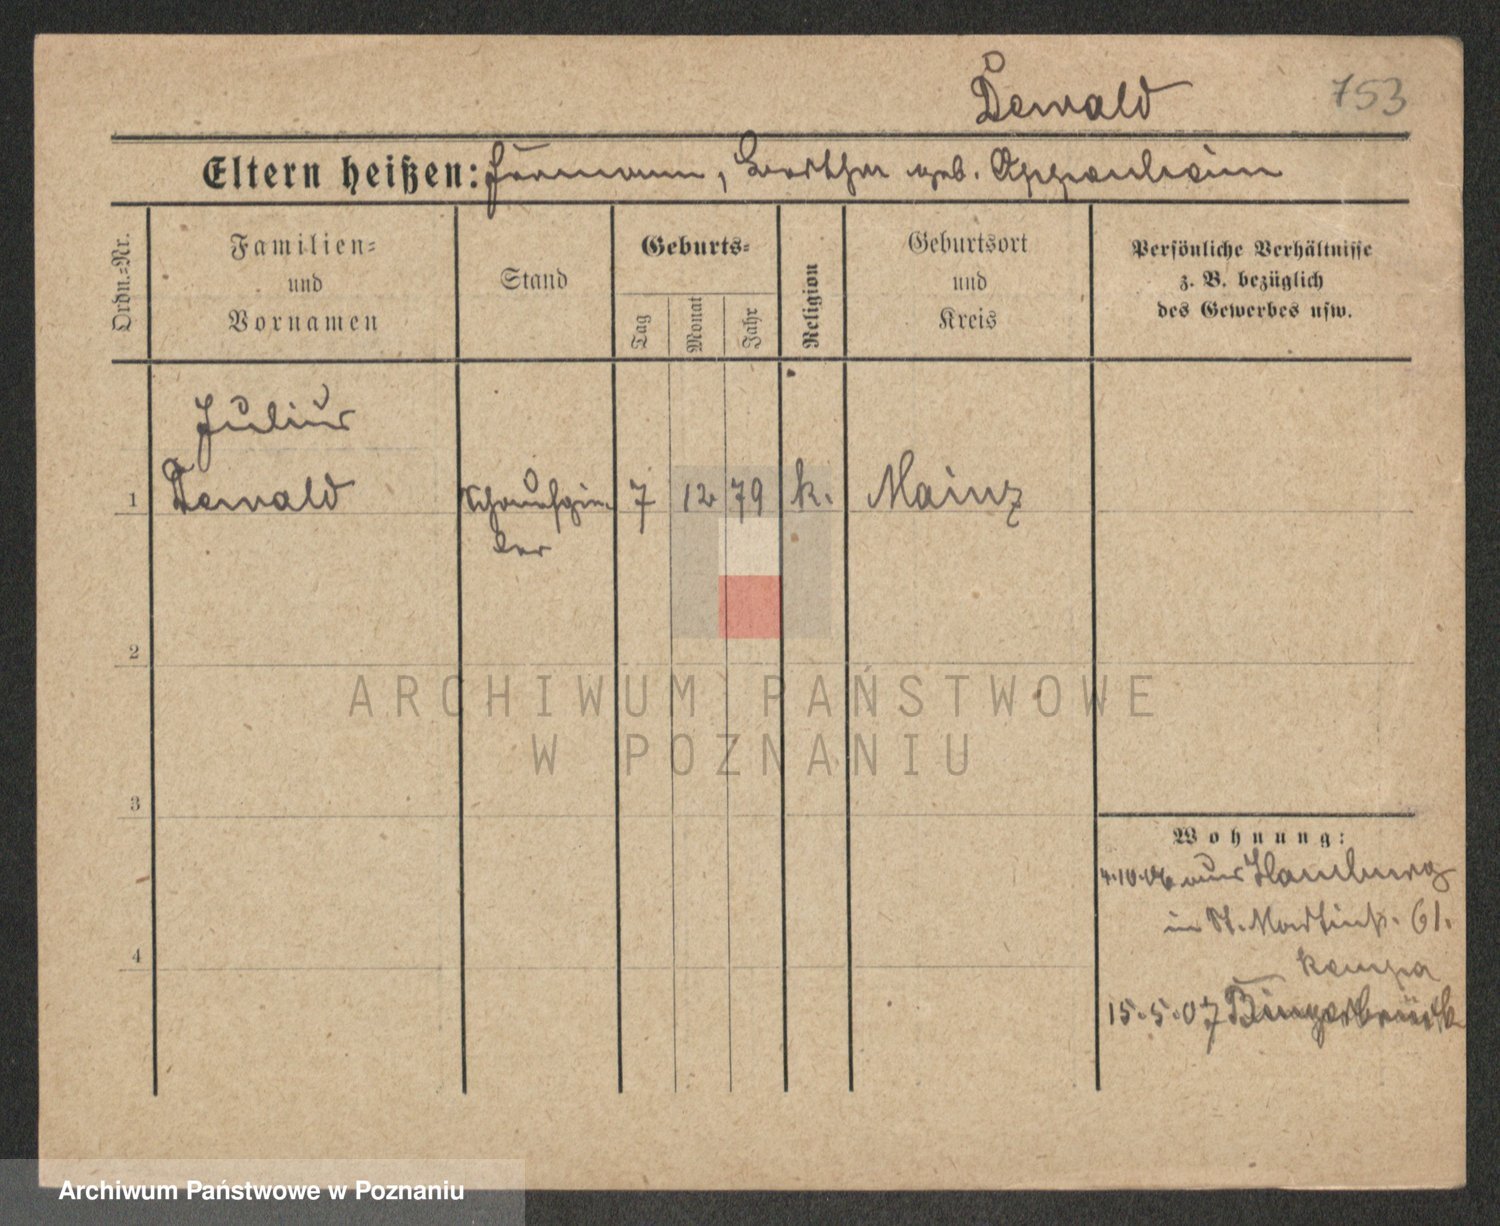 Dewald
753
Eltern heißen: Hermann, Bertha geb. Oppenheim
Ordn.=Nr.
Familien=
und
Vornamen
Stand
Geburts=
Tag
Monat
Jahr
Religion
Geburtsort
und
Kreis
Persönliche Verhältnisse
z. B. bezüglich
des Gewerbes usw.
Julius
1 Dewald Schauspie- 7 12 79 k. Mainz
ler
2
3
4
Wohnung:
4.10.06 aus Hamburg
in St. Martinstr. 61.
Kempa
15.5.07 Bingerbrück
ARCHIWUM PAŃSTWOWE
W POZNANIU
Archiwum Państwowe w Poznaniu